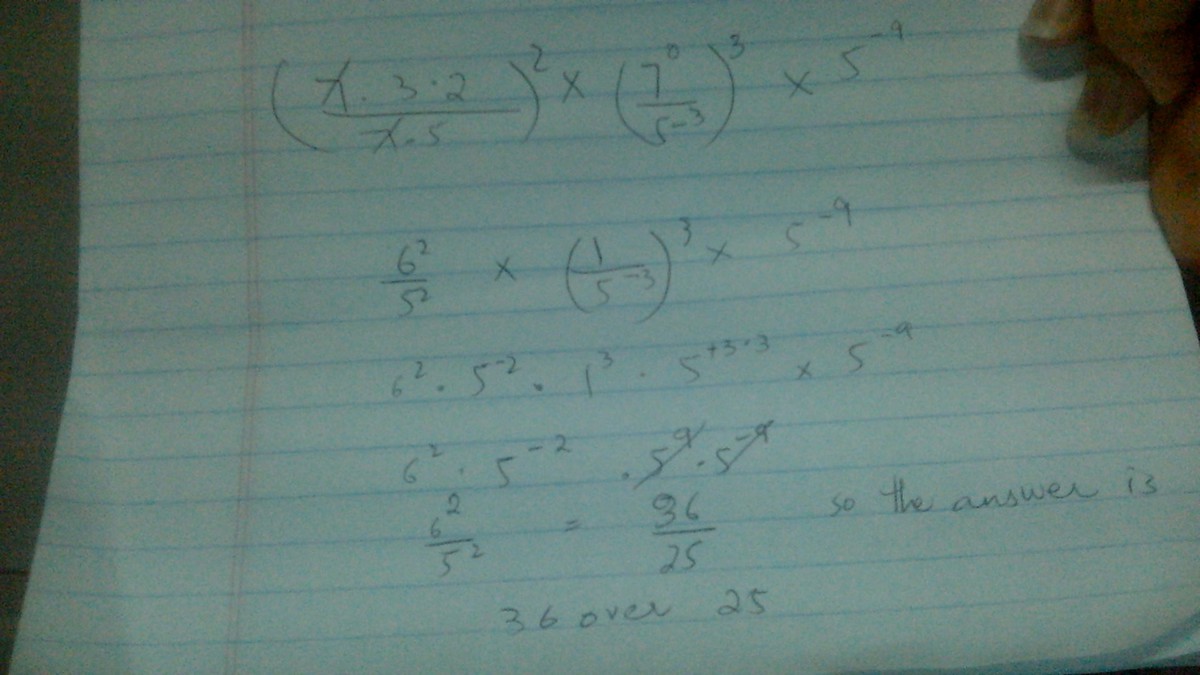 (7 · 3 · 2 / 7 · 5)² × (7⁰ / 5⁻³)³ × 5⁻⁹
6² / 5² × (1 / 5⁻³)³ × 5⁻⁹
6² · 5⁻² · 1³ · 5⁺³·³ × 5⁻⁹
6² · 5⁻² · 5⁹ · 5⁻⁹
6² / 5² = 36 / 25 so the answer is
36 over 25